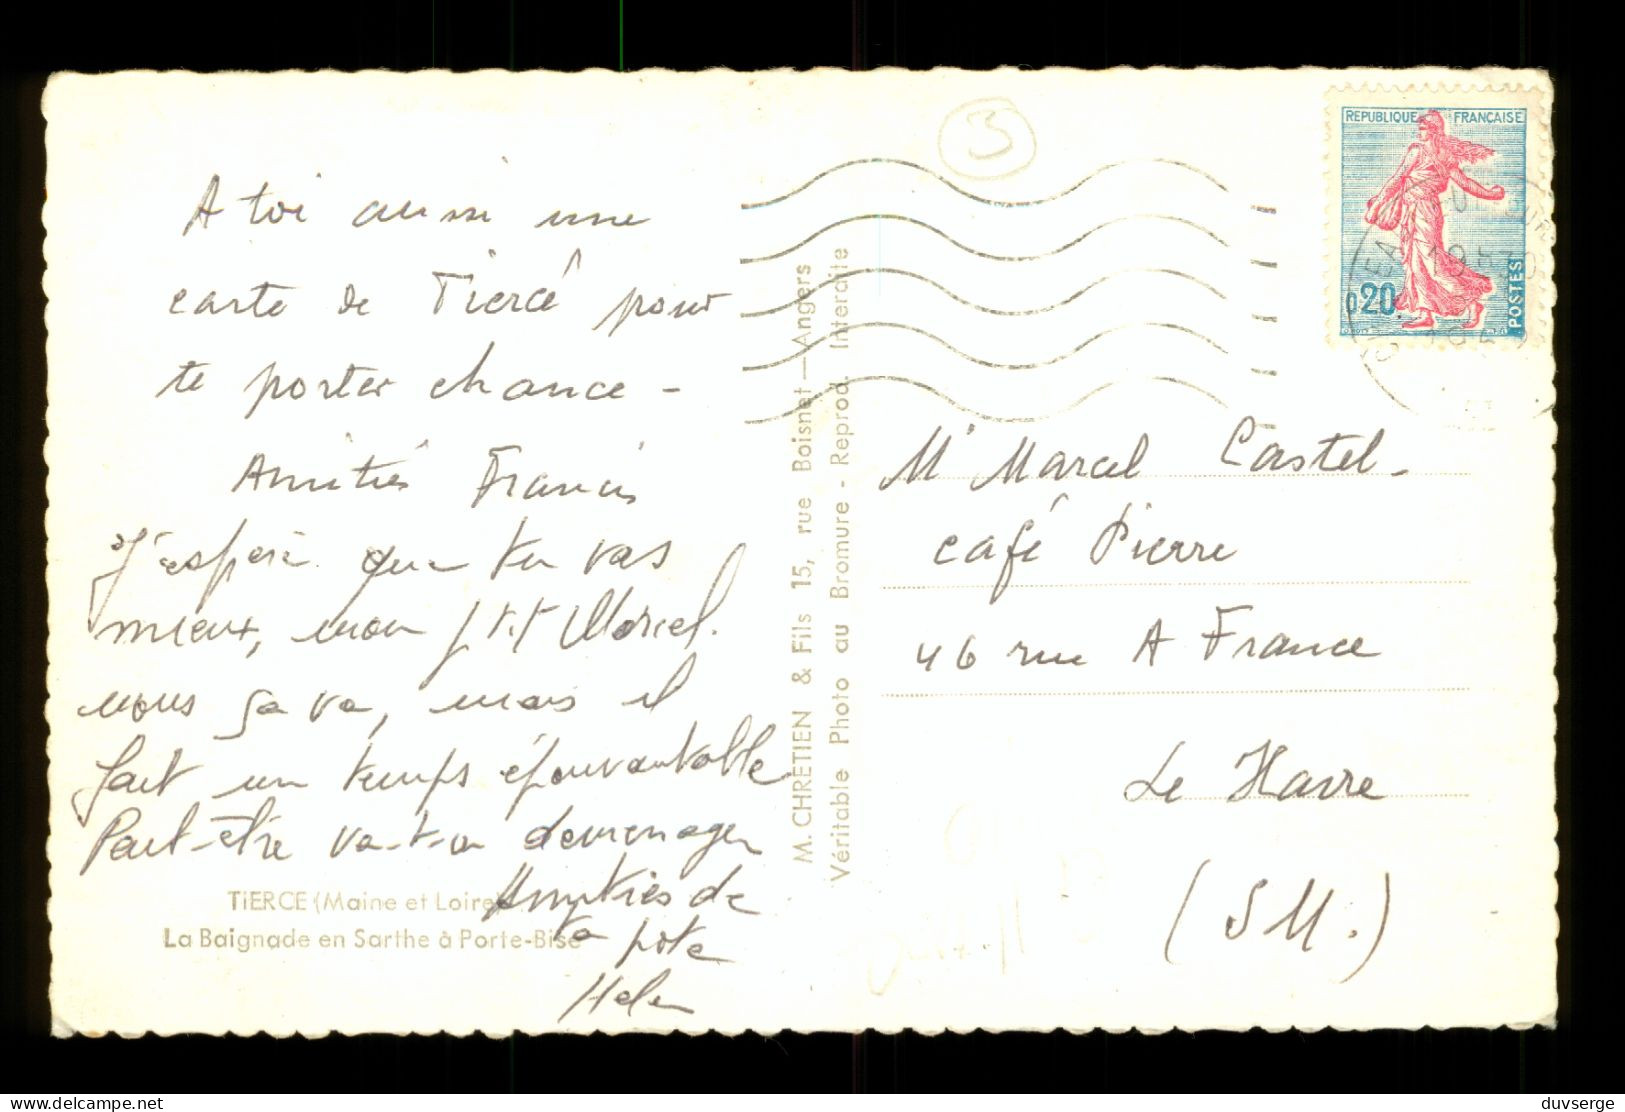 A toi aussi une
carte de Tiercé pour
te porter chance -
Amitiés Francis
J'espère que tu vas
mieux, mon p'tit Marcel.
nous ça va, mais il
fait un temps épouvantable
Peut-être va-t-on demenager
Amitiés de
ta pote
Helen
TiERCE (Maine et Loire)
La Baignade en Sarthe à Porte-Bise
M. CHRETIEN & Fils 15, rue Boisnet — Angers
Véritable Photo au Bromure - Reprod. Interdite
3
REPUBLIQUE FRANÇAISE
0,20
POSTES
Mr Marcel Castel -
café Pierre
46 rue A France
Le Havre
(SM.)
delcampe.net
duvserge